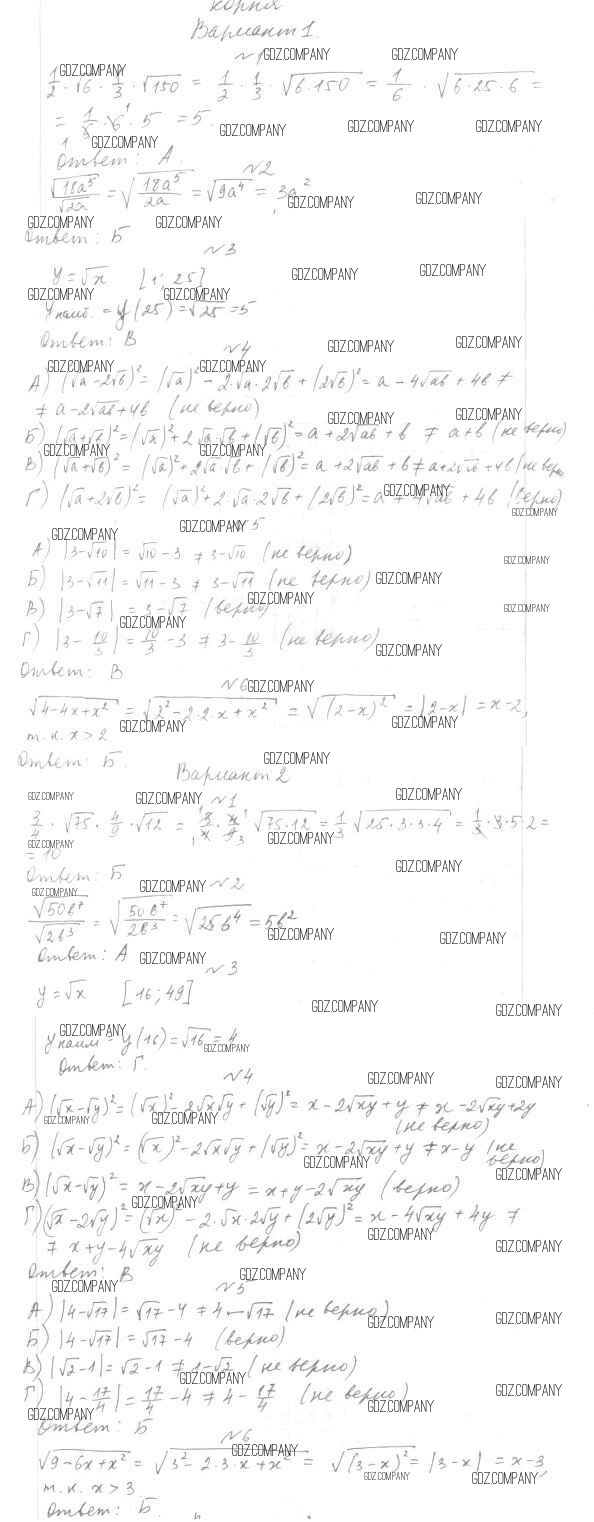 корня
Вариант 1.
№1
1/2 · √6 · 1/3 · √150 = 1/2 · 1/3 · √(6·150) = 1/6 · √(6·25·6) =
= 1/6 · 6 · 5 = 5.
Ответ: А.
№2
√(18a⁵)/√(2a) = √(18a⁵/2a) = √(9a⁴) = 3a²
Ответ: Б
№3
y = √x [1; 25]
y наиб. = y(25) = √25 = 5
Ответ: В
№4
А) (√a-2√b)² = (√a)² - 2·√a·2√b + (2√b)² = a - 4√ab + 4b ≠
≠ a - 2√ab + 4b (не верно)
Б) (√a+√b)² = (√a)² + 2√a·√b + (√b)² = a + 2√ab + b ≠ a+b (не верно)
В) (√a+√b)² = (√a)² + 2√a·√b + (√b)² = a + 2√ab + b ≠ a + 2√ab + 4b (не верно
Г) (√a+2√b)² = (√a)² + 2·√a·2√b + (2√b)² = a + 4√ab + 4b (верно)
№5
А) |3-√10| = √10-3 ≠ 3-√10 (не верно)
Б) |3-√11| = √11-3 ≠ 3-√11 (не верно)
В) |3-√7| = 3-√7 (верно)
Г) |3 - 10/3| = 10/3 - 3 ≠ 3 - 10/3 (не верно)
Ответ: В
№6
√(4-4x+x²) = √(2²-2·2·x+x²) = √((2-x)²) = |2-x| = x-2,
т.к. x>2
Ответ: Б.
Вариант 2
№1
3/4 · √75 · 4/9 · √12 = 3/4 · 4/9 √(75·12) = 1/3 √(25·3·3·4) = 1/3 · 3·5·2 =
= 10
Ответ: Б
№2
√(50b⁷)/√(2b³) = √(50b⁷/2b³) = √(25b⁴) = 5b²
Ответ: А
№3
y = √x [16; 49]
y наим = y(16) = √16 = 4
Ответ: Г.
№4
А) (√x-√y)² = (√x)² - 2√x√y + (√y)² = x - 2√xy + y ≠ x - 2√xy + 2y
(не верно)
Б) (√x-√y)² = (√x)² - 2√x√y + (√y)² = x - 2√xy + y ≠ x-y (не
верно)
В) (√x-√y)² = x - 2√xy + y = x + y - 2√xy (верно)
Г) (√x-2√y)² = (√x)² - 2·√x·2√y + (2√y)² = x - 4√xy + 4y ≠
≠ x + y - 4√xy (не верно)
Ответ: В
№5
А) |4-√17| = √17-4 ≠ 4-√17 (не верно)
Б) |4-√17| = √17-4 (верно)
В) |√2-1| = √2-1 ≠ 1-√2 (не верно)
Г) |4 - 17/4| = 17/4 - 4 ≠ 4 - 17/4 (не верно)
Ответ: Б
№6
√(9-6x+x²) = √(3²-2·3·x+x²) = √((3-x)²) = |3-x| = x-3
т.к. x>3
Ответ: Б.
GDZ.COMPANY